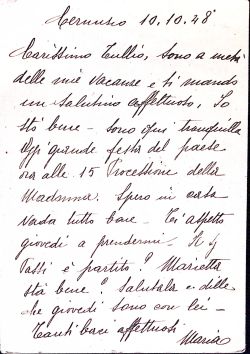 Cernusco 10.10.28
Carissimo Tullio, sono a metà
delle mie vacanze e ti mando
un salutino affettuoso, Io
stò bene - sono qui tranquilla
Oggi grande festa del paese
ora alle 15 Processione della
Madonna. Spero in casa
vada tutto bene - Ti aspetto
giovedì a prendermi.
è partito? Marietta
stà bene? Salutala e dille
che giovedì sono con lei -
Tanti baci affettuosi
Maria